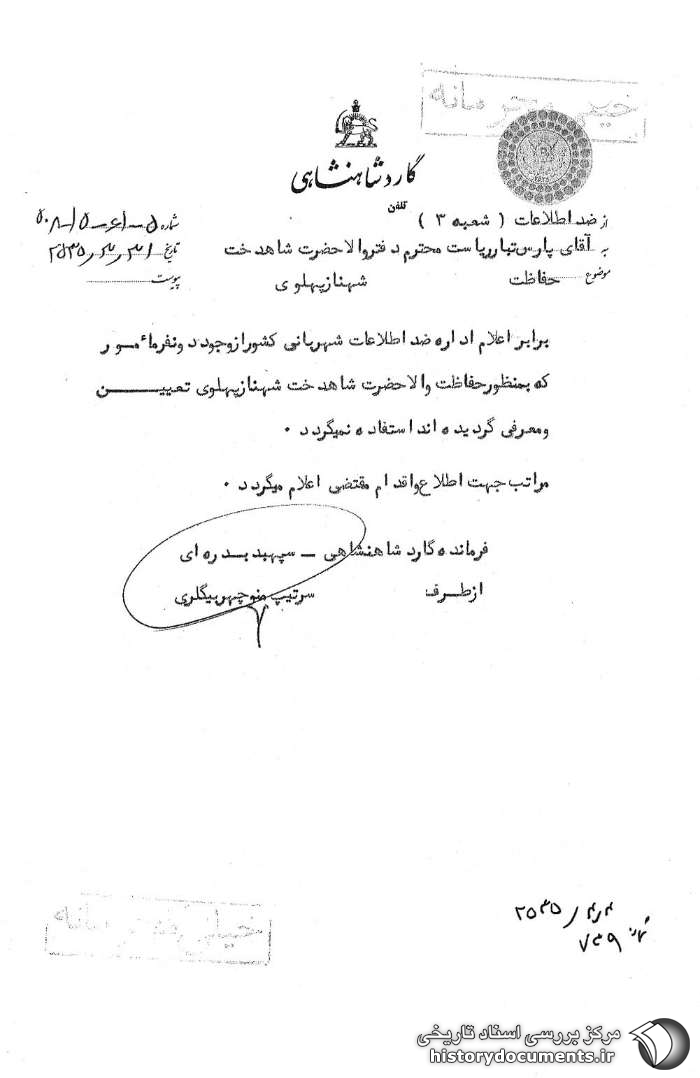 خیلی محرمانه
گارد شاهنشاهی
تلفن
از ضد اطلاعات ( شعبه ۳ )
به آقای پارس تبار ریاست محترم دفتر والاحضرت شاهدخت شهناز پهلوی
موضوع حفاظت
شماره
تاریخ ۲۵۳۵٫۳٫۳۱
پیوست
برابر اعلام اداره ضد اطلاعات شهربانی کشور از وجود دو نفر مأمور
که بمنظور حفاظت والاحضرت شاهدخت شهناز پهلوی تعیین
و معرفی گردیده اند استفاده نمیگردد .
مراتب جهت اطلاع و اقدام مقتضی اعلام میگردد .
فرمانده گارد شاهنشاهی – سپهبد بدره ای
از طرف سرتیپ منوچهر بیگلری
خیلی محرمانه
۲۵۳۵
۷۳۹
مرکز بررسی اسناد تاریخی
historydocuments.ir